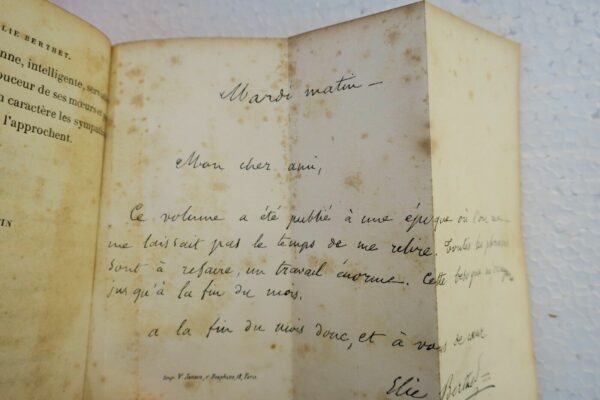 LIE BERTHET.
nne, intelligente, ser
ouceur de ses mœurs et
n caractère les sympat
l'approchent.
IN
Mardi matin —
Mon cher ami,
Ce volume a été publié à une époque où l'on ne
me laissait pas le temps de me relire. Toutes les phrases
sont à refaire, un travail énorme. Cette besogne
jusqu'à la fin du mois.
a la fin du mois donc, et à vous de cœur
Elie Berthet
Imp. Vr Janson, r. Dauphine, 18, Paris.